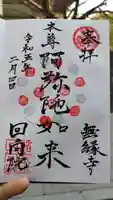 奉拝
無縁寺
本尊
阿弥陀如来
回向院
令和五年
二月四日